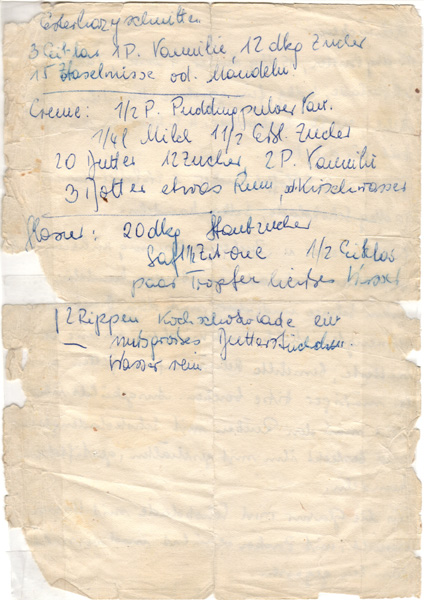 Esterhazyschnitten
3 Eiklar 1 P. Vannilie, 12 dkg Zucker
15 Haselnüsse od. Mandeln
Creme: 1/2 P. Puddingpulver Van.
1/4 l Milch 1 1/2 Essl. Zucker
20 Butter 12 Zucker 2 P. Vannilie
3 Dotter etwas Rum, od Kirschwasser
Glasur: 20 dkg Staubzucker
Saft 1/2 Zitrone 1/2 Eiklar
paar Tropfen heißes Wasser
2 Rippen Kochschokolade ein
nußgroßes Butterstückchen
Wasser rein